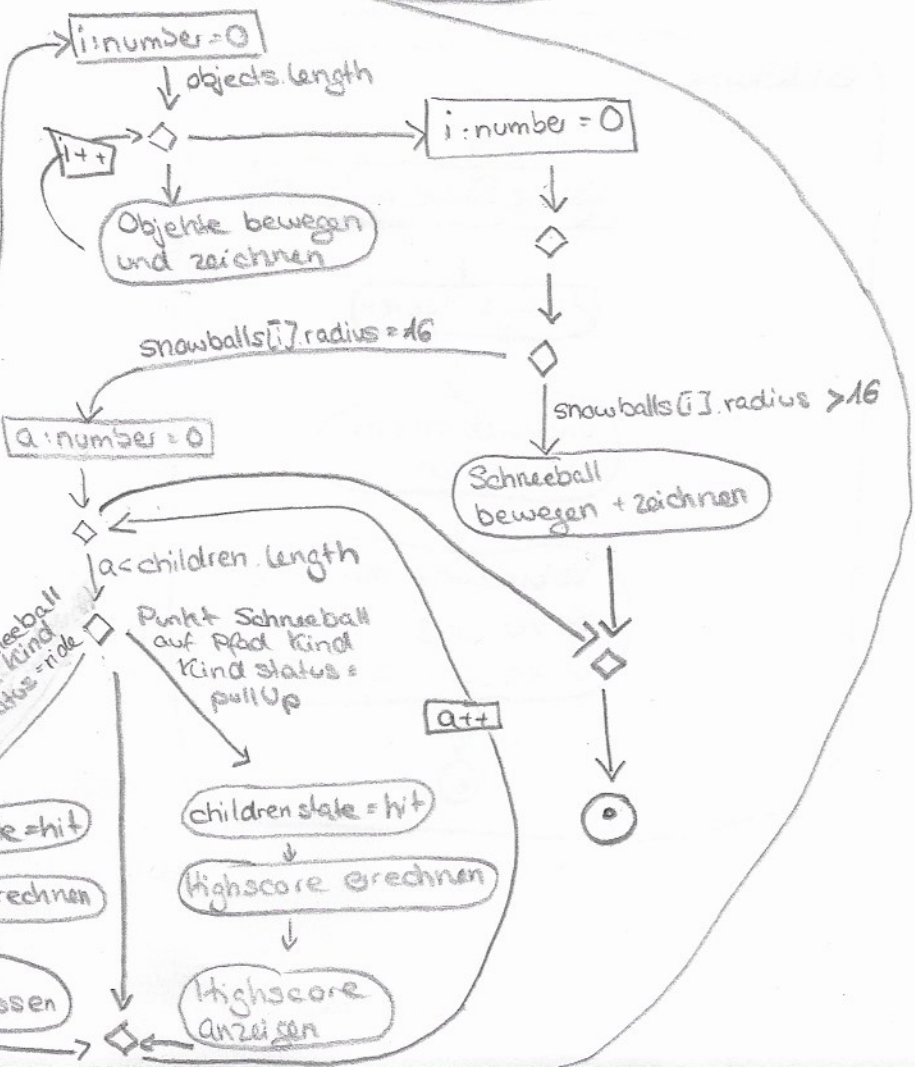 i:number=0
objects.length
i++
i:number = 0
Objekte bewegen
und zeichnen
snowballs[i].radius = 16
snowballs[i].radius >16
a:number = 0
Schneeball
bewegen + zeichnen
a<children.length
eeball
Kind
atus = ride
Punkt Schneeball
auf Pfad Kind
Kind status =
pullUp
a++
e = hit
children state = hit
rechnen
Highscore errechnen
ssen
Highscore
anzeigen